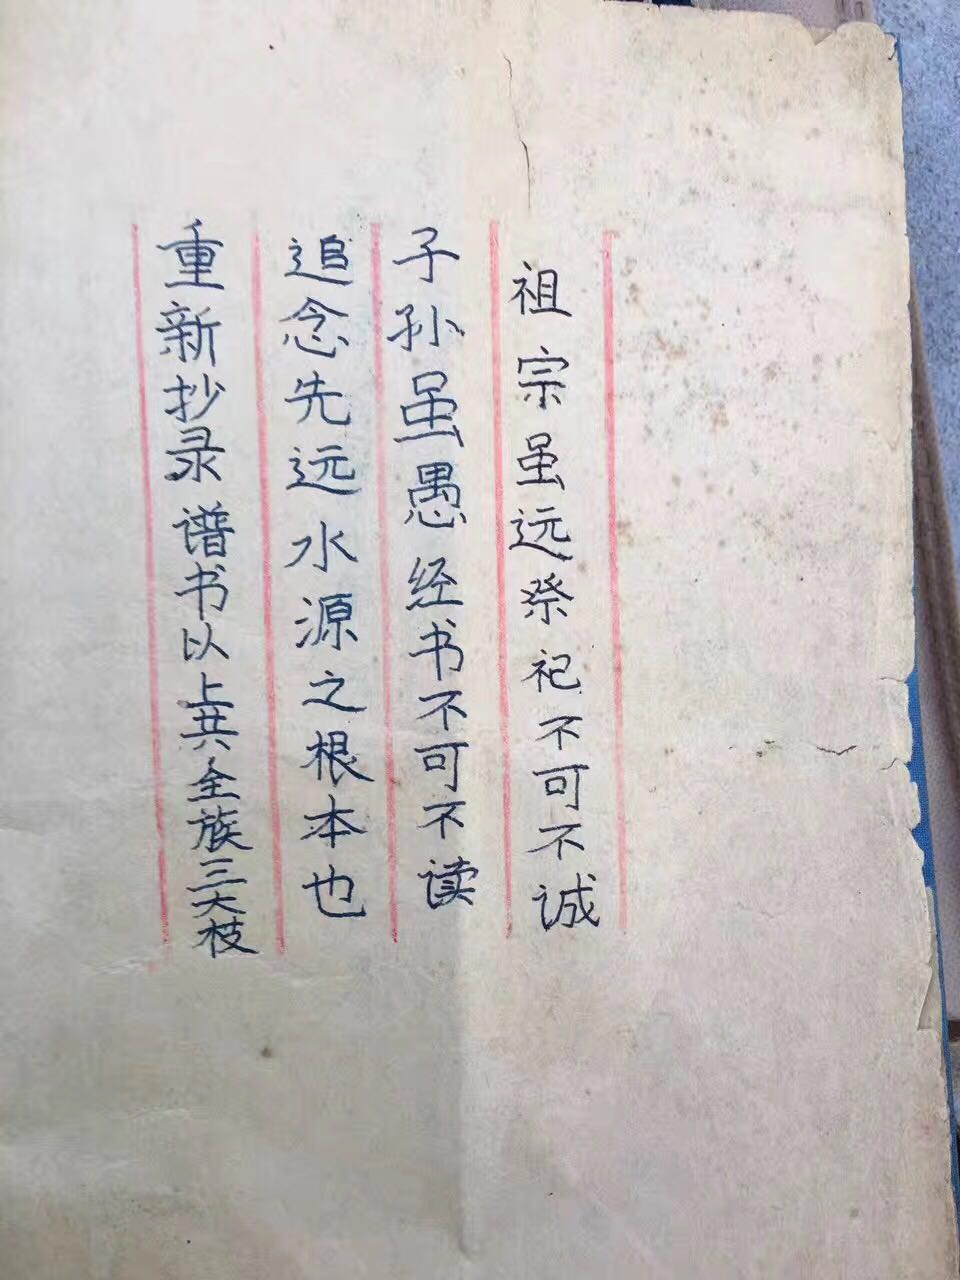 祖宗虽远祭祀不可不诚
子孙虽愚经书不可不读
追念先远水源之根本也
重新抄录谱书以上共全族三大枝